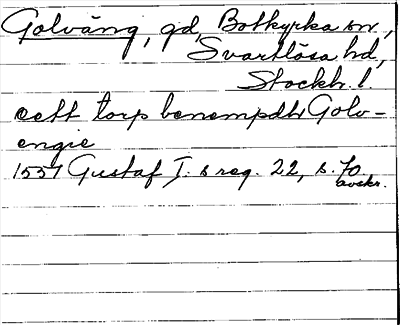 Golväng, gd, Botkyrka sn,
Svartlösa hd,
Stockh. l.
ett torp benempdh Golv-
engie
1551 Gustaf I:s reg. 22, s. 70
avskr.